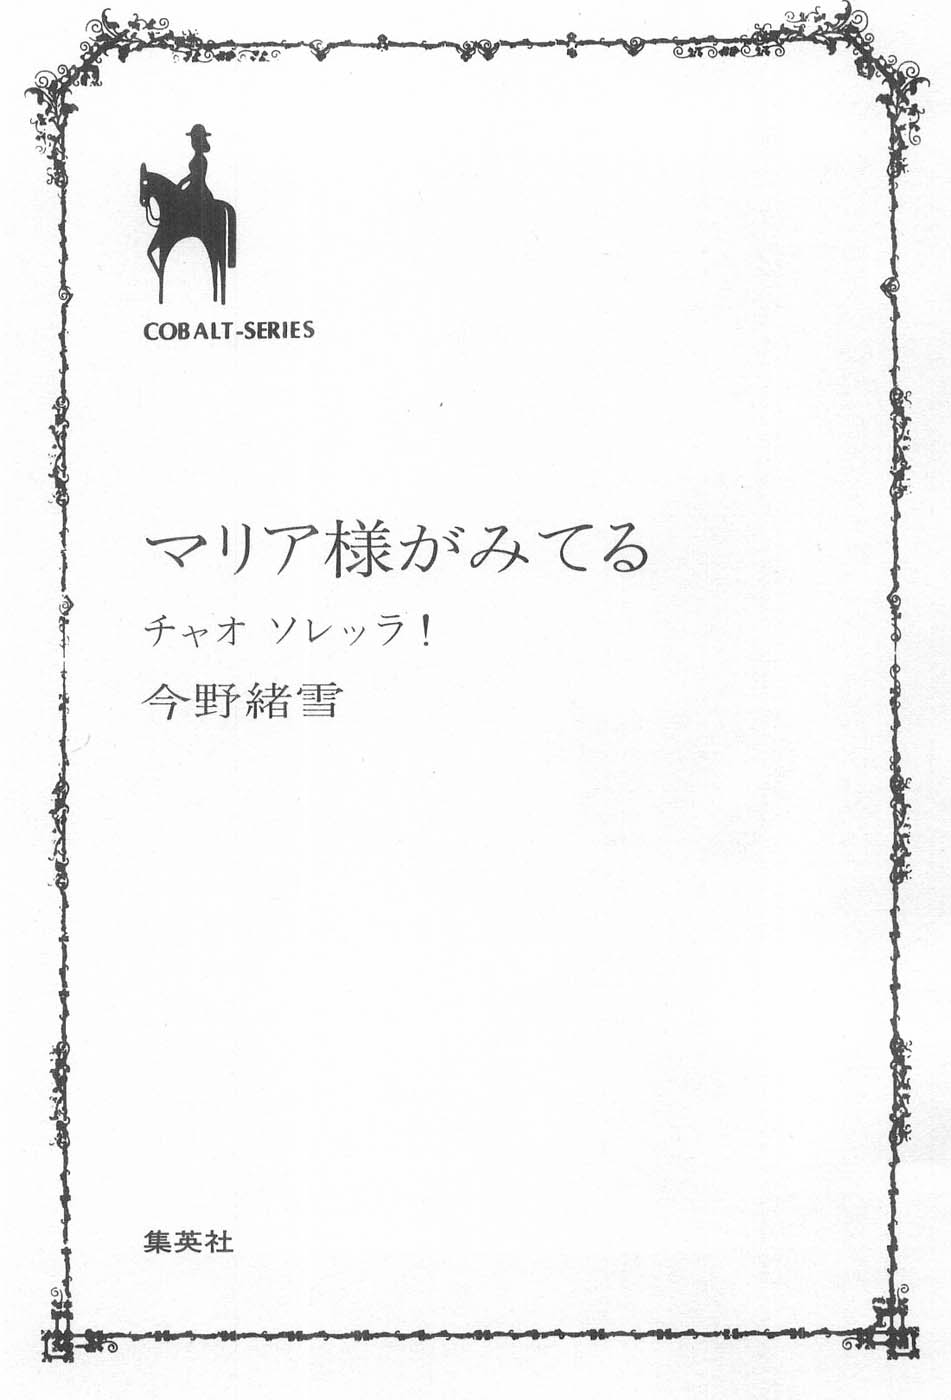 COBALT-SERIES
マリア様がみてる
チャオ ソレッラ！
今野緒雪
集英社